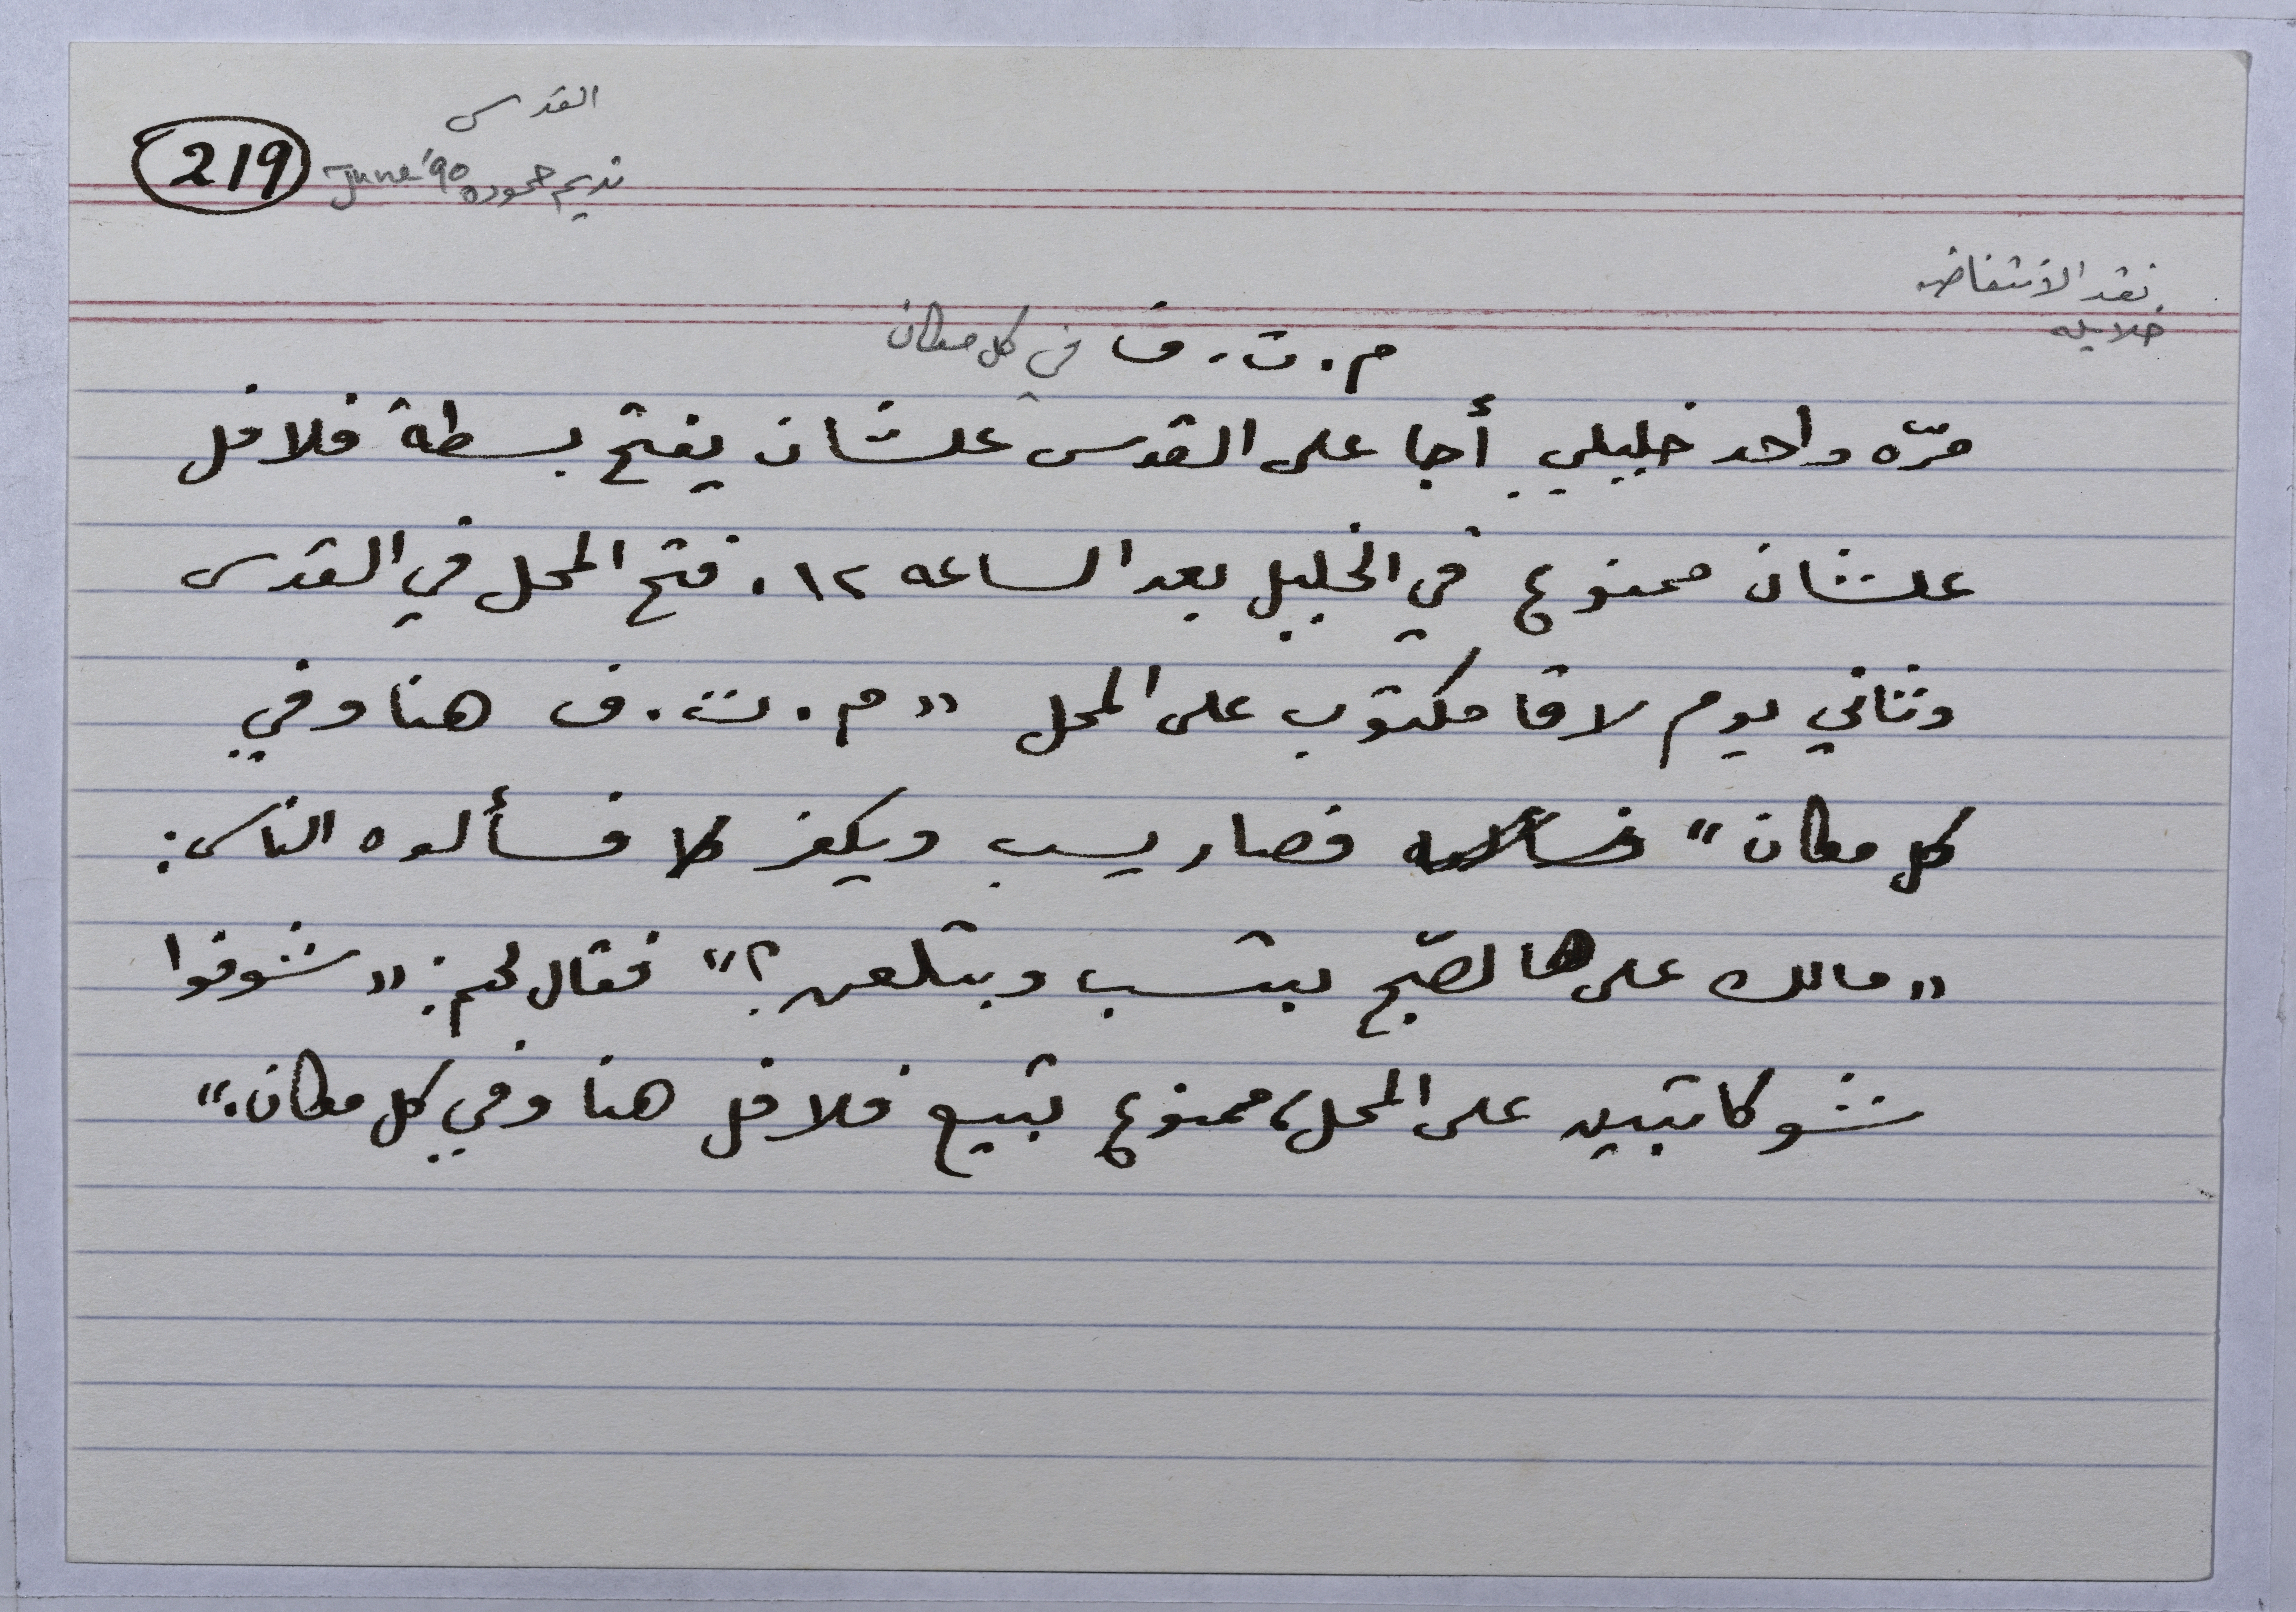 القدس
219 June '90 نديم حموده
نقد الانتفاضه
خلايله
م. ت. ف في كل مكان
مرّه واحد خليلي أجا على القدس علشان يفتح بسطة فلافل
علشان ممنوع في الخليل بعد الساعه ١٢. فتح المحل في القدس
وثاني يوم لاقا مكتوب على المحل "م. ت. ف هنا وفي
كل مكان" فصار يسب ويكفر فسألوه الناس:
"مالك على هالصّبح بتسب وبتلعن؟" فقال لهم: "شوفوا
شو كاتبين على المحل، ممنوع تبيع فلافل هنا وفي كل مكان."